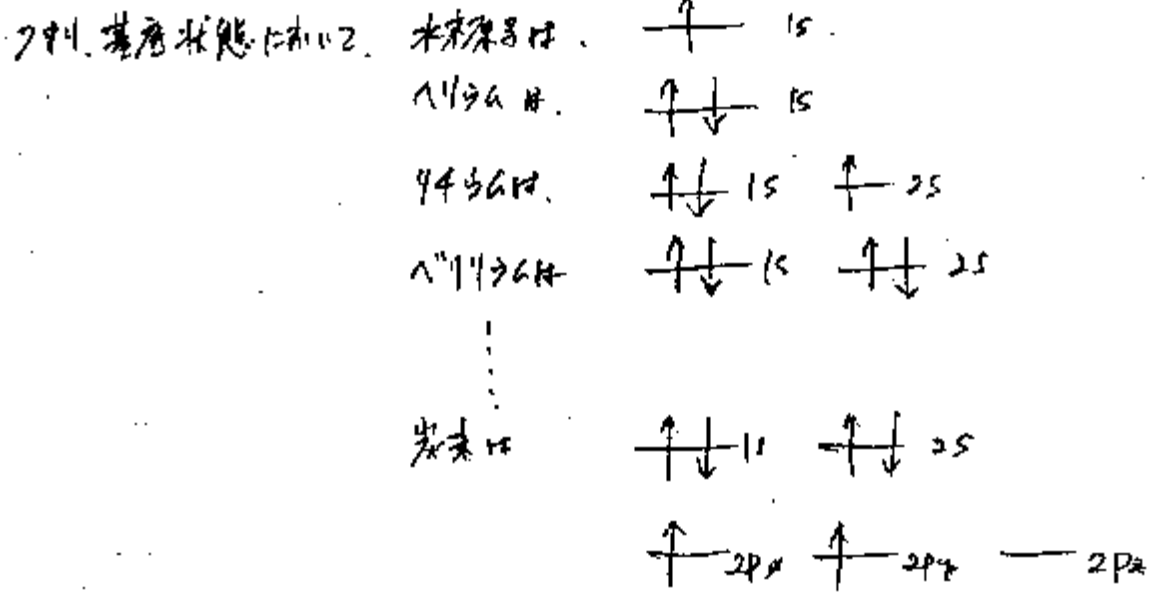 つまり、基底状態において、水素原子は、 1s
ヘリウムは、 1s
リチウムは、 1s 2s
ベリリウムは 1s 2s
炭素は 1s 2s
2px 2py 2pz